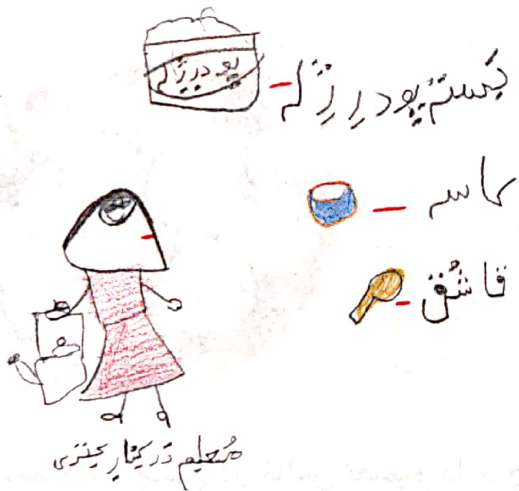 پودر ژله
بسته پودر ژله
کاسه
قاشق
معلم در کنار